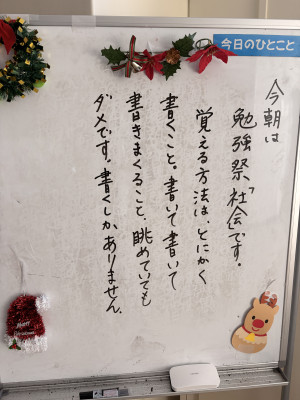 今日のひとこと
今朝は
勉強祭「社会」です。
覚える方法は、とにかく
書くこと。書いて書いて
書きまくること、眺めていても
ダメです。書くしかありません。